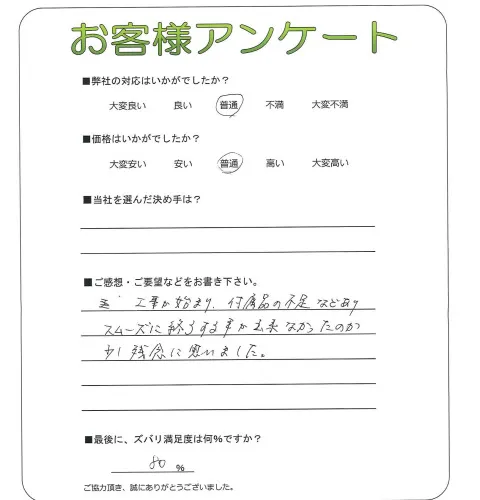 お客様アンケート
■弊社の対応はいかがでしたか?
大変良い 良い 普通 不満 大変不満
■価格はいかがでしたか?
大変安い 安い 普通 高い 大変高い
■当社を選んだ決め手は?
■ご感想・ご要望などをお書き下さい。
工事が始まり、付属品の不足などあり
スムーズに終了する事が出来なかったのが
少し残念に思いました。
■最後に、ズバリ満足度は何%ですか?
80 %
ご協力頂き、誠にありがとうございました。